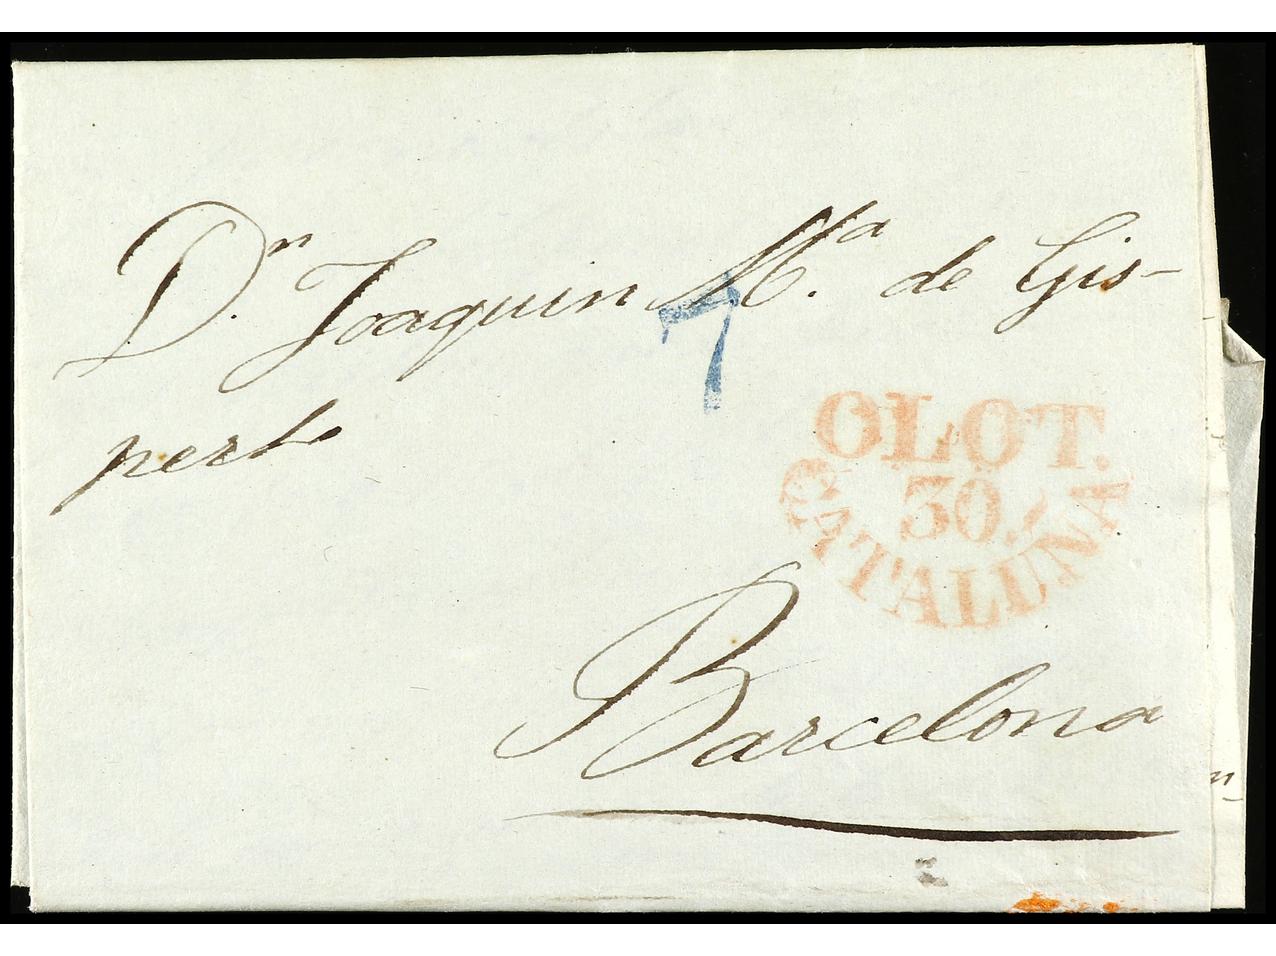 Dn. Joaquin Ma. de Gis-
pert
7
OLOT.
30.
CATALUÑA
Barcelona